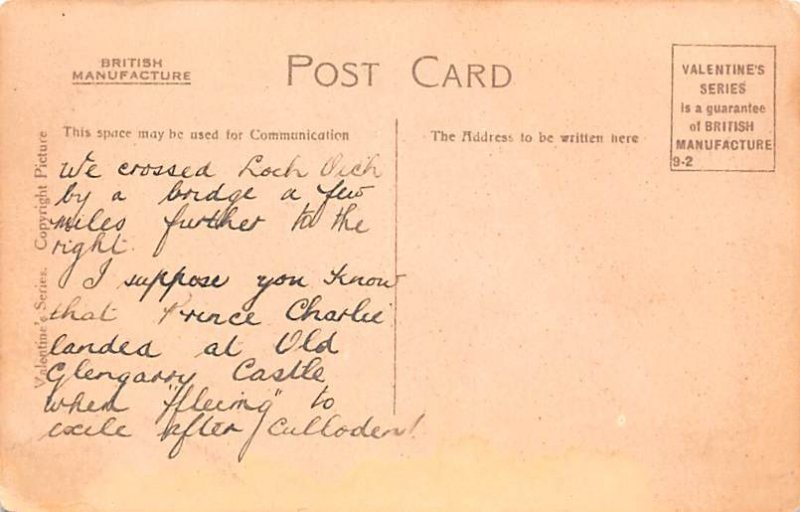 BRITISH
MANUFACTURE
POST CARD
VALENTINE'S
SERIES
is a guarantee
of BRITISH
MANUFACTURE
9-2
This space may be used for Communication
The Address to be written here
Valentine's Series. Copyright Picture
We crossed Loch Oich
by a bridge a few
miles further to the
right.
I suppose you know
that Prince Charlie
landed at Old
Glengarry Castle
when "fleeing" to
exile after Culloden!